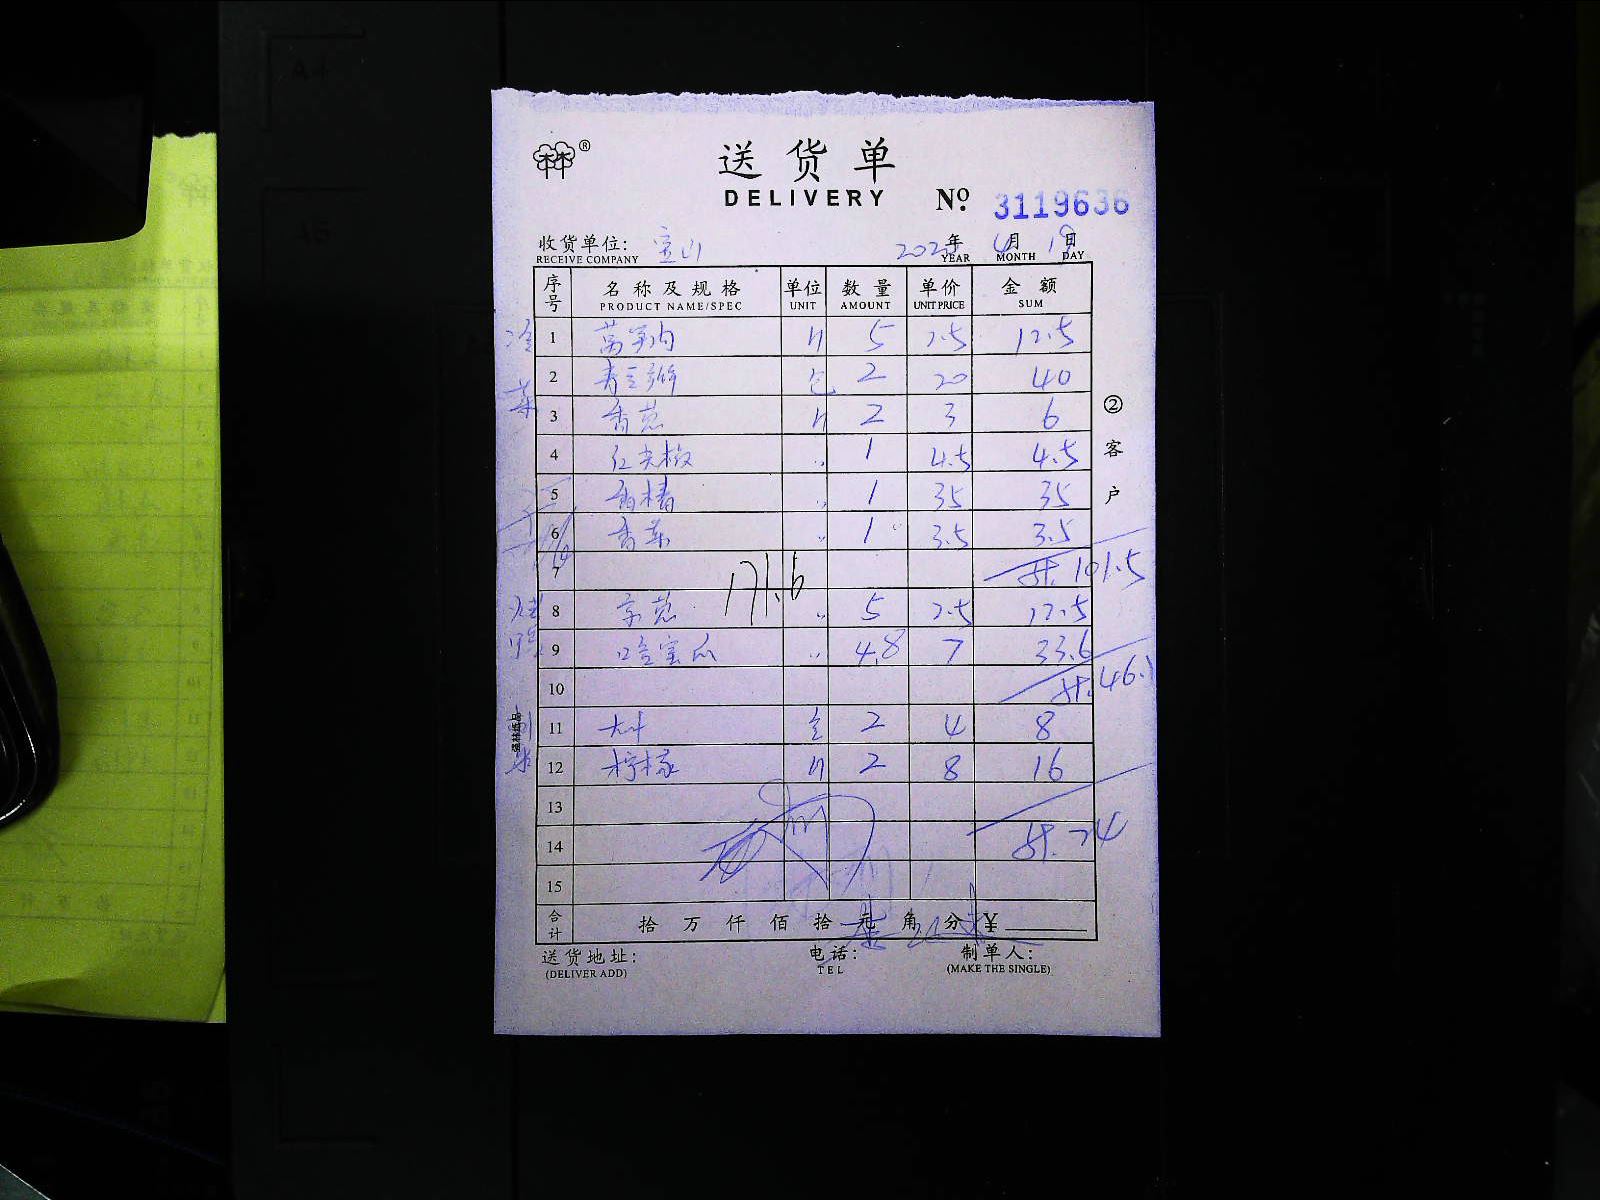 送货单
DELIVERY № 3119636
收货单位: 宝山 年 4月 19日
RECEIVE COMPANY YEAR MONTH DAY
序号 名称及规格 单位 数量 单价 金额
PRODUCT NAME/SPEC UNIT AMOUNT UNIT PRICE SUM
1 莴笋肉 斤 5 2.5 12.5
2 青豆瓣 包 2 20 40
3 香葱 斤 2 3 6
4 红尖椒 〃 1 4.5 4.5
5 香椿 〃 1 35 35
6 香菜 〃 1 3.5 3.5
7 计. 101.5
171.6
8 京葱 〃 5 2.5 12.5
9 哈密瓜 〃 4.8 7 33.6
10 计. 46.1
11 2 4 8
12 柠檬 斤 2 8 16
13
14 计. 24
15
合计 拾 万 仟 佰 拾 元 角 分 ¥
送货地址: 电话: 制单人:
(DELIVER ADD) TEL (MAKE THE SINGLE)
②客户